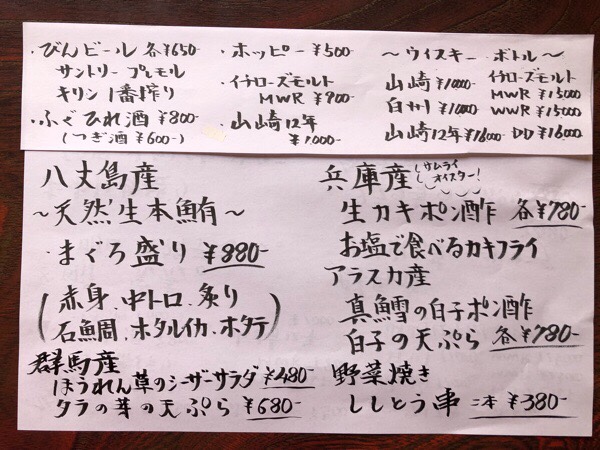 ・びんビール 各¥650-
サントリー プレモル
キリン 1番搾り
・ふぐひれ酒 ¥800-
(つぎ酒 ¥600-)
・ホッピー ¥500-
・イチローズモルト
MWR ¥900-
・山崎12年
¥1,000-
〜ウイスキー ボトル〜
山崎 ¥10000-
白州 ¥10000-
山崎12年 ¥16000-
イチローズモルト
MWR ¥15000
WWR ¥15000-
DD ¥16000
八丈島産
〜天然生本鮪〜
・まぐろ盛り ¥880-
(赤身、中トロ、炙り
石鯛、ホタルイカ、ホタテ)
群馬産
ほうれん草のシーザーサラダ ¥480-
タラの芽の天ぷら ¥680-
兵庫産 サムライ
オイスター!
生カキポン酢 各¥780-
お塩で食べるカキフライ
アラスカ産
真鱈の白子ポン酢
白子の天ぷら 各¥780-
野菜焼き
ししとう串 二本 ¥380-